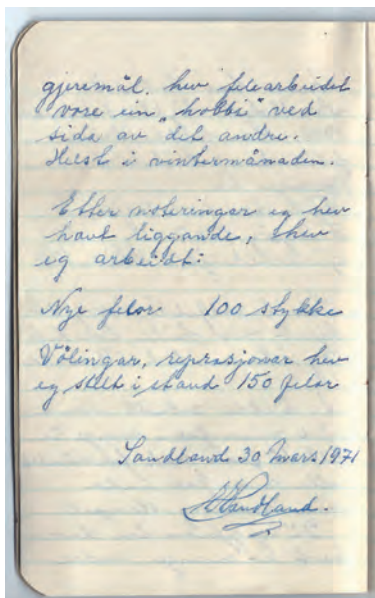 gjeremål, hev felearbeidet
vore ein „hobbi" ved
sida av det andre.
Helst i vintermånaden.
Etter noteringar eg hev
havt liggande, hev
eg arbeidt:
Nye felor 100 stykke
Vølingar, reprasjonar hev
eg stelt i stand 150 felor
Sandland 30 Mars 1971
Sandland.